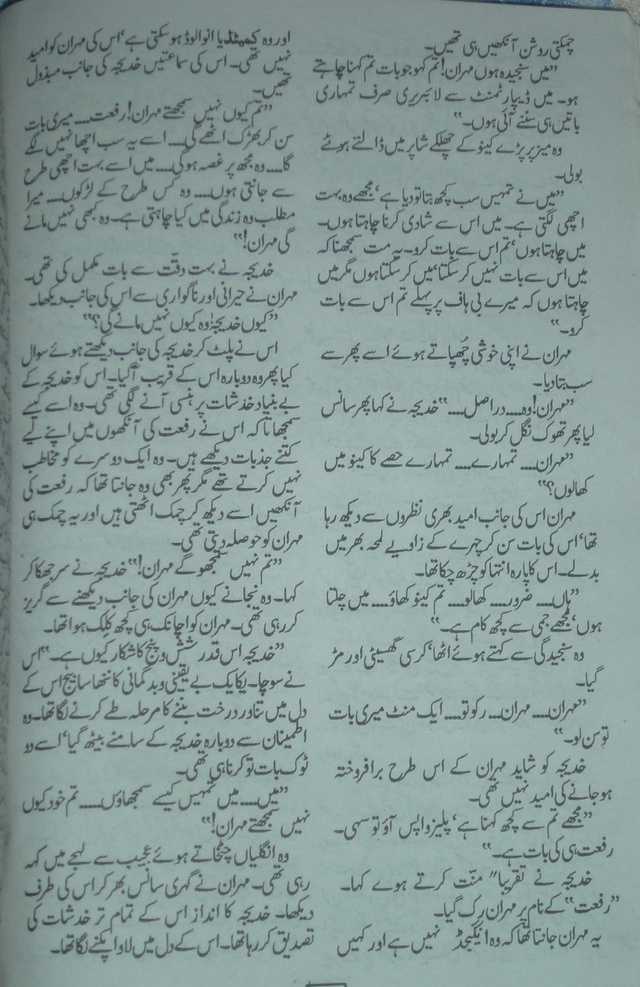 چمکتی روشن آنکھیں ہی تھیں۔
”میں سنجیدہ ہوں مہران! تم کہو جو بات تم کہنا چاہتے
ہو۔ میں ڈیپارٹمنٹ سے لائبریری صرف تمہاری
باتیں ہی سننے آئی ہوں۔“
وہ میز پر پڑے کینو کے چھلکے شاپر میں ڈالتے ہوئے
بولی۔
”میں نے تمہیں سب کچھ بتا تو دیا ہے‘ مجھے وہ بہت
اچھی لگتی ہے۔ میں اس سے شادی کرنا چاہتا ہوں۔
میں چاہتا ہوں‘ تم اس سے بات کرو۔ یہ مت سمجھنا کہ
میں اس سے بات نہیں کر سکتا‘ میں کر سکتا ہوں مگر میں
چاہتا ہوں کہ میرے بی ہاف پر پہلے تم اس سے بات
کرو۔“
مہران نے اپنی خوشی چھپاتے ہوئے اسے پھر سے
سب بتا دیا۔
”مہران! وہ.... دراصل....“ خدیجہ نے کہا پھر سانس
لیا پھر تھوک نگل کر بولی۔
”مہران.... تمہارے.... تمہارے حصے کا کینو میں
کھالوں؟“
مہران اس کی جانب امید بھری نظروں سے دیکھ رہا
تھا‘ اس کی بات سن کر چہرے کے زاویے لمحہ بھر میں
بدلے۔ اس کا پارہ انتہا کو چڑھ چکا تھا۔
”ہاں.... ضرور.... کھالو.... تم کینو کھاؤ.... میں چلتا
ہوں‘ مجھے جمی سے کچھ کام ہے۔“
وہ سنجیدگی سے کہتے ہوئے اٹھا‘ کرسی گھسیٹی اور مڑ
گیا۔
”مہران.... مہران.... رکو تو.... ایک منٹ میری بات
تو سن لو۔“
خدیجہ کو شاید مہران کے اس طرح برافروختہ
ہو جانے کی امید نہیں تھی۔
”مجھے تم سے کچھ کہنا ہے‘ پلیز واپس آؤ تو سہی۔
رفعت ہی کی بات ہے۔“
خدیجہ نے تقریبا” منت کرتے ہوئے کہا۔
”رفعت“ کے نام پر مہران رک گیا۔
یہ مہران جانتا تھا کہ وہ انگیجڈ نہیں ہے اور کہیں
اور وہ کمیٹڈ یا انوالوڈ ہو سکتی ہے‘ اس کی مہران کو امید
نہیں تھی۔ اس کی سماعتیں خدیجہ کی جانب مبذول
تھیں۔
”تم کیوں نہیں سمجھتے مہران! رفعت.... میری بات
سن کر بھڑک اٹھے گی.... اسے یہ سب اچھا نہیں لگے
گا.... وہ مجھ پر غصہ ہوگی.... میں اسے بہت اچھی طرح
سے جانتی ہوں.... وہ کس طرح کے لڑکوں.... میرا
مطلب وہ زندگی میں کیا چاہتی ہے۔ وہ کبھی نہیں مانے
گی مہران!“
خدیجہ نے بہت دقت سے بات مکمل کی تھی۔
مہران نے حیرانی اور ناگواری سے اس کی جانب دیکھا۔
”کیوں خدیجہ! وہ کیوں نہیں مانے گی؟“
اس نے پلٹ کر خدیجہ کی جانب دیکھتے ہوئے سوال
کیا پھر وہ دوبارہ اس کے قریب آگیا۔ اس کو خدیجہ کے
بے بنیاد خدشات پر ہنسی آنے لگی تھی۔ وہ اسے کیسے
سمجھاتا کہ اس نے رفعت کی آنکھوں میں اپنے لیے
کتنے جذبات دیکھے ہیں۔ وہ ایک دوسرے کو مخاطب
نہیں کرتے تھے مگر پھر بھی وہ جانتا تھا کہ رفعت کی
آنکھیں اسے دیکھ کر چمک اٹھتی ہیں اور یہ چمک ہی
مہران کو حوصلہ دیتی تھی۔
”تم نہیں سمجھو گے مہران!“ خدیجہ نے سر جھکا کر
کہا۔ وہ نجانے کیوں مہران کی جانب دیکھنے سے گریز
کر رہی تھی۔ مہران کو اچانک ہی کچھ کلک ہوا تھا۔
”خدیجہ اس قدر شش و پنج کا شکار کیوں ہے۔“ اس
نے سوچا۔ یکایک بے یقینی و بدگمانی کا ننھا سا بیج اس کے
دل میں تناور درخت بننے کا مرحلہ طے کرنے لگا تھا۔ وہ
اطمینان سے دوبارہ خدیجہ کے سامنے بیٹھ گیا‘ اسے دو
ٹوک بات تو کرنا ہی تھی۔
”میں.... میں تمہیں کیسے سمجھاؤں.... تم خود کیوں
نہیں سمجھتے مہران!“
وہ انگلیاں چٹخاتے ہوئے عجیب سے لہجے میں کہہ
رہی تھی۔ مہران نے گہری سانس بھر کر اس کی طرف
دیکھا۔ خدیجہ کا انداز اس کے تمام تر خدشات کی
تصدیق کر رہا تھا۔ اس کے دل میں لاوا پکنے لگا تھا۔